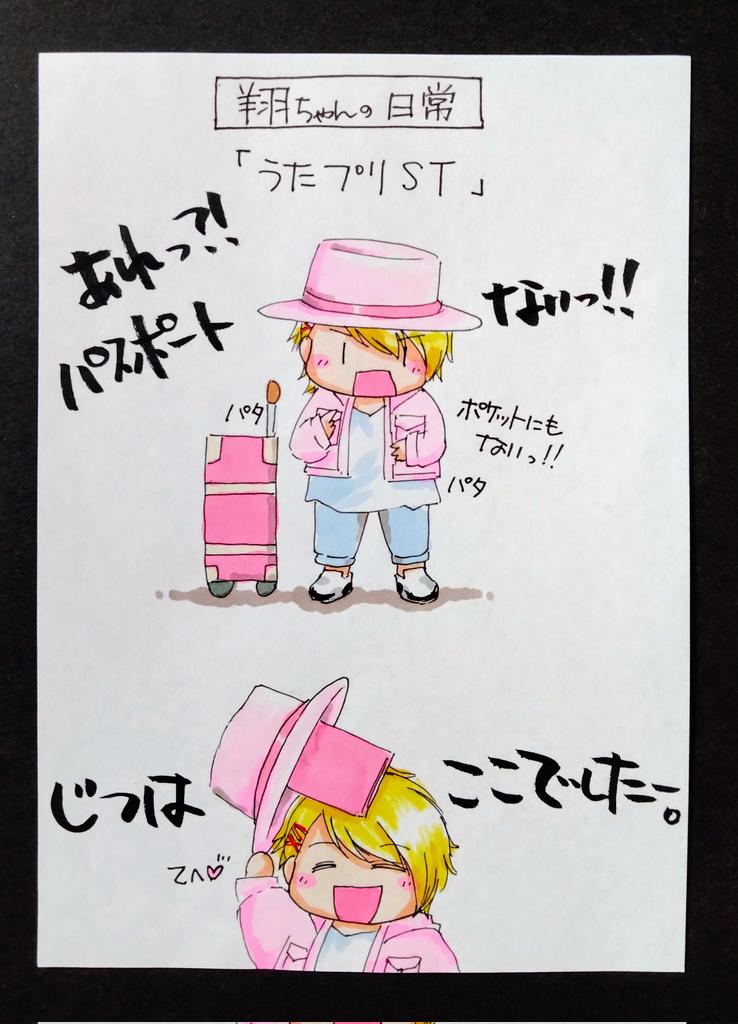 翔ちゃんの日常
「うたプリST」
あれっ?!
パスポート
ないっ!!
パタ
ポケットにも
ないっ!!
パタ
じつは
ここでしたー。
てへ♡